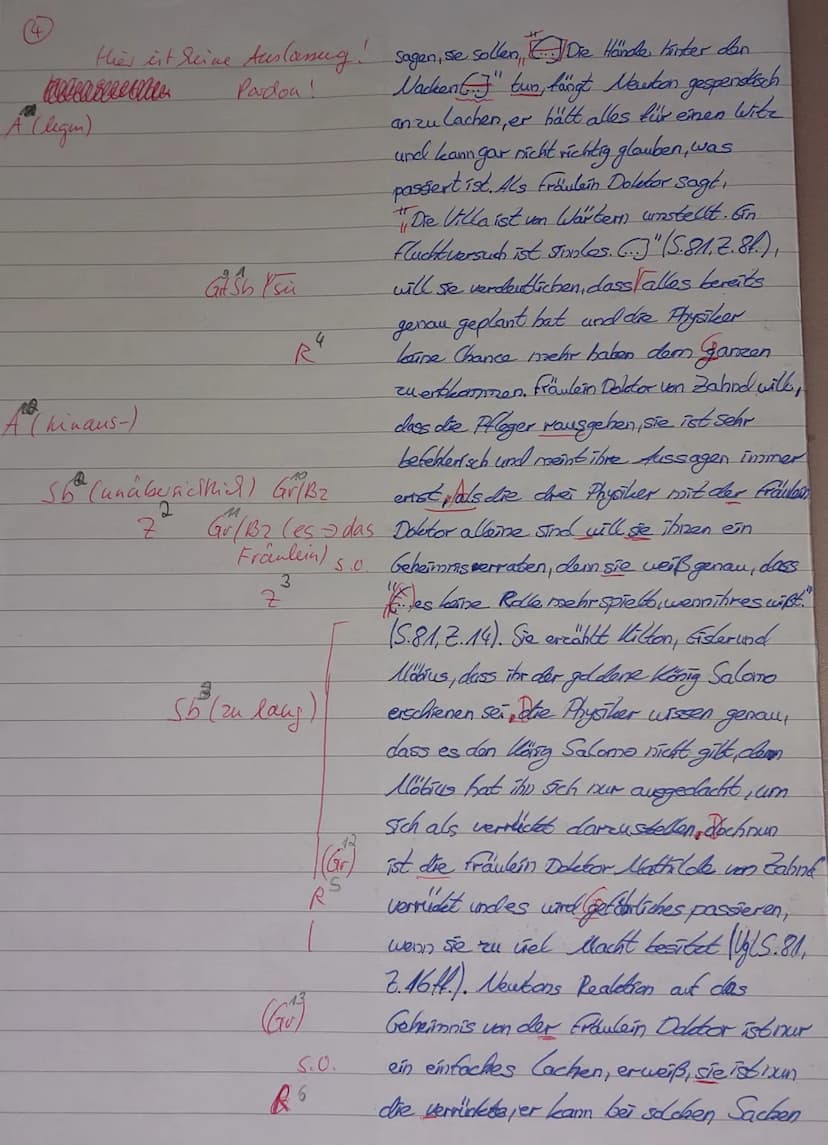 4
Hier ist keine Auslassung! sagen, sie sollen „[...] Die Hände hinter den
Pardon! Nacken [...]" tun, fängt Newton gespenstisch
A (legen) anzulachen, er hält alles für einen Witz
und kann gar nicht richtig glauben, was
passiert ist. Als Fräulein Doktor sagt,
„Die Villa ist von Wärtern umstellt. Ein
Fluchtversuch ist sinnlos. [...]" (S.81, Z.8f.),
Gr Sb √sie will sie verdeutlichen, dass √ alles bereits
genau geplant hat und die Physiker
R 4 keine Chance mehr haben dem Ganzen
zu entkommen. Fräulein Doktor von Zahnd will,
A (hinaus-) dass die Pfleger rausgehen, sie ist sehr
befehlerisch und meint ihre Aussagen immer
Sb (unübersichtlich) Gr/Bz 10 ernst. Als die drei Physiker mit der Fräulein
Z 2 Gr/Bz 11 (es → das Doktor alleine sind will sie ihnen ein
Fräulein) s.o. Geheimnis verraten, denn sie weiß genau, dass
Z 3 „[...] es keine Rolle mehr spielt, wenn ihr es wißt."
(S.81, Z.14). Sie erzählt Kilton, Eisler und
Möbius, dass ihr der goldene König Salomo
Sb 3 (zu lang) erschienen sei. Die Physiker wissen genau,
dass es den König Salomo nicht gibt, denn
Möbius hat ihn sich nur ausgedacht, um
sich als verrückt darzustellen. Doch nun
(Gr) 12 ist die Fräulein Doktor Mathilde von Zahnd
R 5 verrückt und es wird Gefährliches passieren,
wenn sie zu viel Macht besitzt (Vgl. S.81,
Z.16ff.). Newtons Reaktion auf das
(Gr) 13 Geheimnis von der Fräulein Doktor ist nur
s.o. ein einfaches Lachen, er weiß, sie ist nun
R 6 die verrückte, er kann bei solchen Sachen